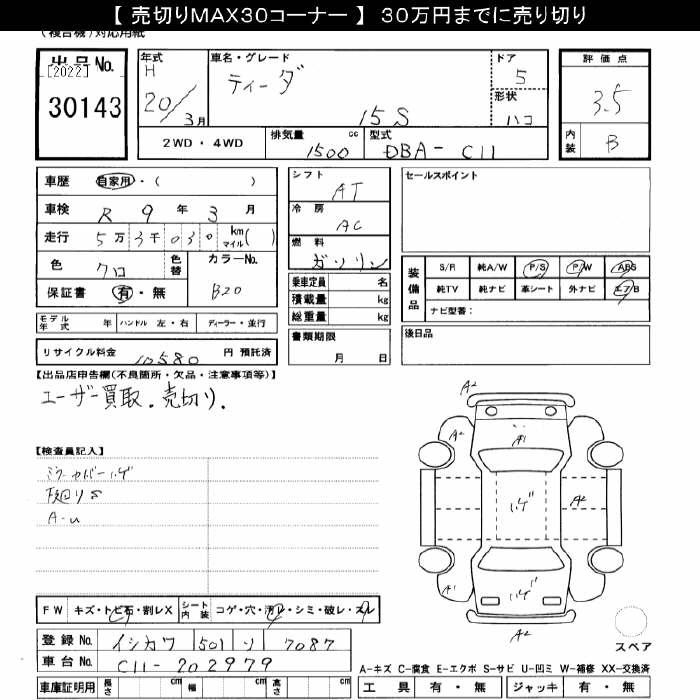 【 売切りMAX30コーナー 】 30万円までに売り切り
(複合機)対応用紙
出品No. [2022] 30143
年式 H 20/3月
車名・グレード ティーダ 15S
ドア 5
形状 ハコ
評価点 3.5
内装 B
2WD・4WD 排気量 1500 cc 型式 DBA- C11
車歴 自家用・( )
車検 R 9年 3月
走行 5万 3千 0 3 0 km マイル( )
色 クロ 色替 カラーNo. B20
保証書 有・無
モデル年式 年 ハンドル 左・右 ディーラー・並行
リサイクル料金 10580 円 預託済
シフト AT
冷房 AC
燃料 ガソリン
乗車定員 名
積載量 kg
総重量 kg
書類期限 月 日
セールスポイント
装備品 S/R 純A/W P/S P/W ABS
純TV 純ナビ 革シート 外ナビ エアB
ナビ型番:
後日品
【出品店申告欄(不良箇所・欠品・注意事項等)】
ユーザー買取.売切り.
【検査員記入】
ミラーカバーハゲ
下廻りS
A-U
A2
A2
A1
ハゲ
A2
A1
ハゲ
A2
A2
スペア
FW キズ・トビ石・割レX シート内装 コゲ・穴・汚レ・シミ・破レ・スレ
登録No. イシカワ 501 ソ 7087
車台No. C11-202979
車庫証明用 長さ cm 幅 cm 高さ cm
A-キズ C-腐食 E-エクボ S-サビ U-凹ミ W-補修 XX-交換済
工具 有・無 ジャッキ 有・無